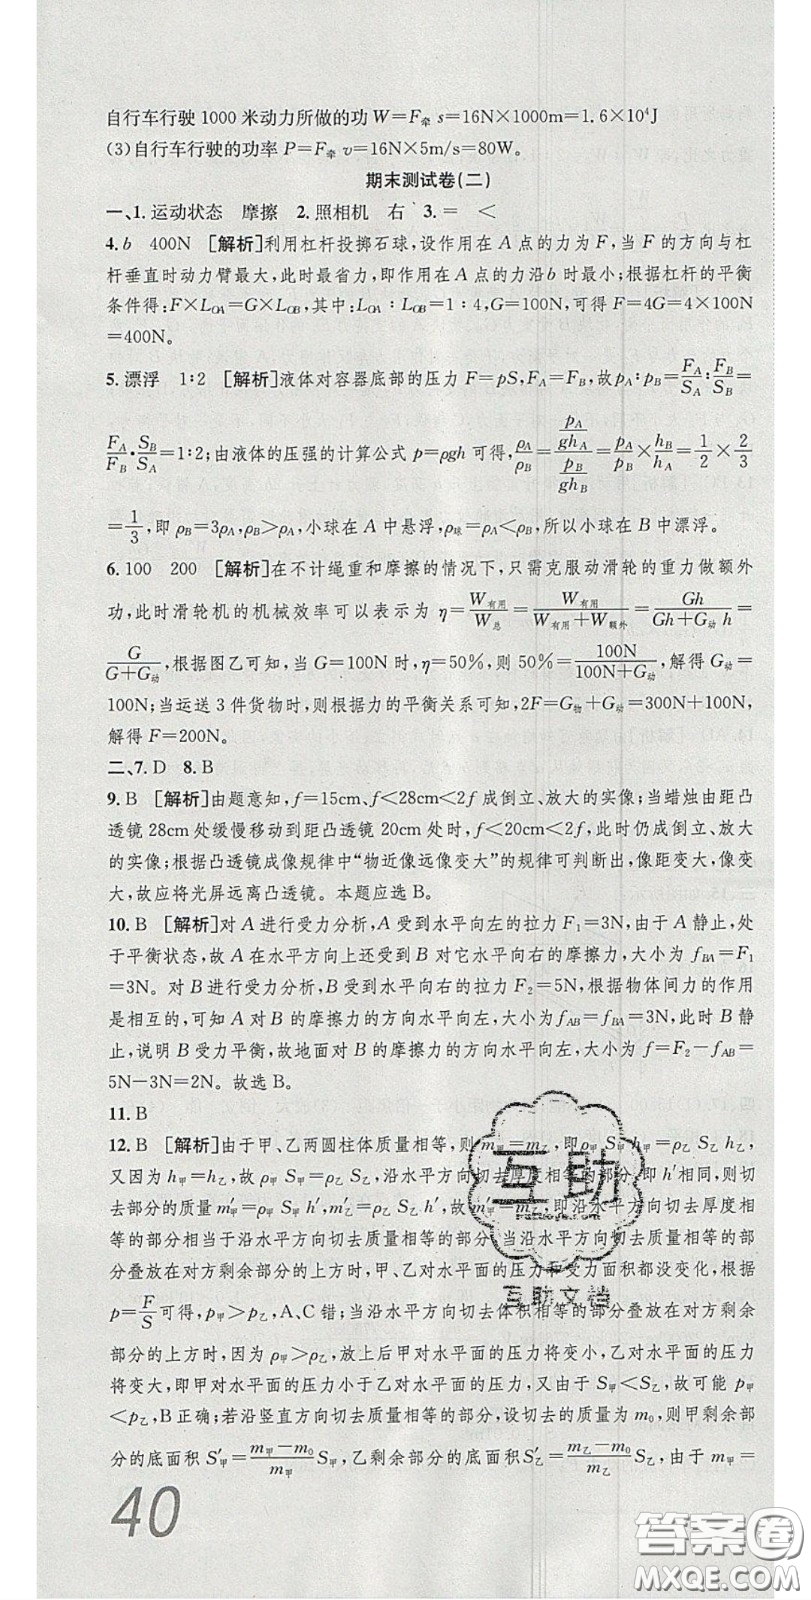 自行车行驶 1000 米动力所做的功 W=F牵 s=16N×1000m=1.6×10⁴J
(3)自行车行驶的功率 P=F牵 v=16N×5m/s=80W。
期末测试卷(二)
一、1.运动状态 摩擦 2.照相机 右 3.= <
4.b 400N [解析]利用杠杆投掷石球,设作用在 A 点的力为 F,当 F 的方向与杠
杆垂直时动力臂最大,此时最省力,即作用在 A 点的力沿 b 时最小;根据杠杆的平衡
条件得:F×L_OA=G×L_OB,其中:L_OA∶L_OB=1∶4,G=100N,可得 F=4G=4×100N
=400N。
5.漂浮 1∶2 [解析]液体对容器底部的压力 F=pS,F_A=F_B,故p_A∶p_B=F_A/S_A∶F_B/S_B=
F_A/F_B·S_B/S_A=1∶2;由液体的压强的计算公式 p=ρgh 可得,ρ_A/ρ_B=(p_A/gh_A)/(p_B/gh_B)=p_A/p_B×h_B/h_A=1/2×2/3
=1/3,即 ρ_B=3ρ_A,ρ_B>ρ_A,小球在 A 中悬浮,ρ球=ρ_A<ρ_B,所以小球在 B 中漂浮。
6.100 200 [解析]在不计绳重和摩擦的情况下,只需克服动滑轮的重力做额外
功,此时滑轮机的机械效率可以表示为 η=W有用/W总=W有用/(W有用+W额外)=Gh/(Gh+G动 h)=
G/(G+G动),根据图乙可知,当 G=100N 时,η=50%,则 50%=100N/(100N+G动),解得 G动=
100N;当运送 3 件货物时,则根据力的平衡关系可知,2F=G物+G动=300N+100N,
解得 F=200N。
二、7.D 8.B
9.B [解析]由题意知,f=15cm,f<28cm<2f 成倒立、放大的实像;当蜡烛由距凸
透镜 28cm 处缓慢移动到距凸透镜 20cm 处时,f<20cm<2f,此时仍成倒立、放大
的实像;根据凸透镜成像规律中“物近像远像变大”的规律可判断出,像距变大,像变
大,故应将光屏远离凸透镜。本题应选 B。
10.B [解析]对 A 进行受力分析,A 受到水平向左的拉力 F₁=3N,由于 A 静止,处
于平衡状态,故 A 在水平方向上还受到 B 对它水平向右的摩擦力,大小为 f_BA=F₁
=3N。对 B 进行受力分析,B 受到水平向右的拉力 F₂=5N,根据物体间力的作用
是相互的,可知 A 对 B 的摩擦力的方向水平向左,大小为 f_AB=f_BA=3N,此时 B 静
止,说明 B 受力平衡,故地面对 B 的摩擦力的方向水平向左,大小为 f=F₂-f_AB=
5N-3N=2N。故选 B。
11.B
12.B [解析]由于甲、乙两圆柱体质量相等,则 m甲=m乙,即ρ甲 S甲 h甲=ρ乙 S乙 h乙,
又因为 h甲=h乙,故 ρ甲 S甲=ρ乙 S乙,沿水平方向切去厚度相等的部分,即 h′相同,则切
去的质量 m′甲=ρ甲 S甲 h′,m′乙=ρ乙 S乙 h′,故 m′甲=m′乙,即沿水平方向切去厚度相
等的部分相当于沿水平方向切去质量相等的部分;当沿水平方向切去厚度相等的
部分叠放在对方剩余部分的上方时,甲、乙对水平面的压力和受力面积都没变化,根据
p=F/S可得,p甲>p乙,A、C 错;当沿水平方向切去体积相等的部分叠放在对方剩余
部分的上方时,因为 ρ甲>ρ乙,故上放后甲对水平面的压力将变小,乙对水平面的压力
将变大,即甲对水平面的压力小于乙对水平面的压力,又由于 S甲<S乙,故可能 p甲
<p乙,B正确;若沿竖直方向切去质量相等的部分,设切去的质量为 m₀,则甲剩余部
分的底面积 S′甲=(m甲-m₀)/m甲 S甲,乙剩余部分的底面积 S′乙=(m乙-m₀)/m乙 S乙,由于 m甲=
40
互助
互助文档
答案圈
MXQE.COM